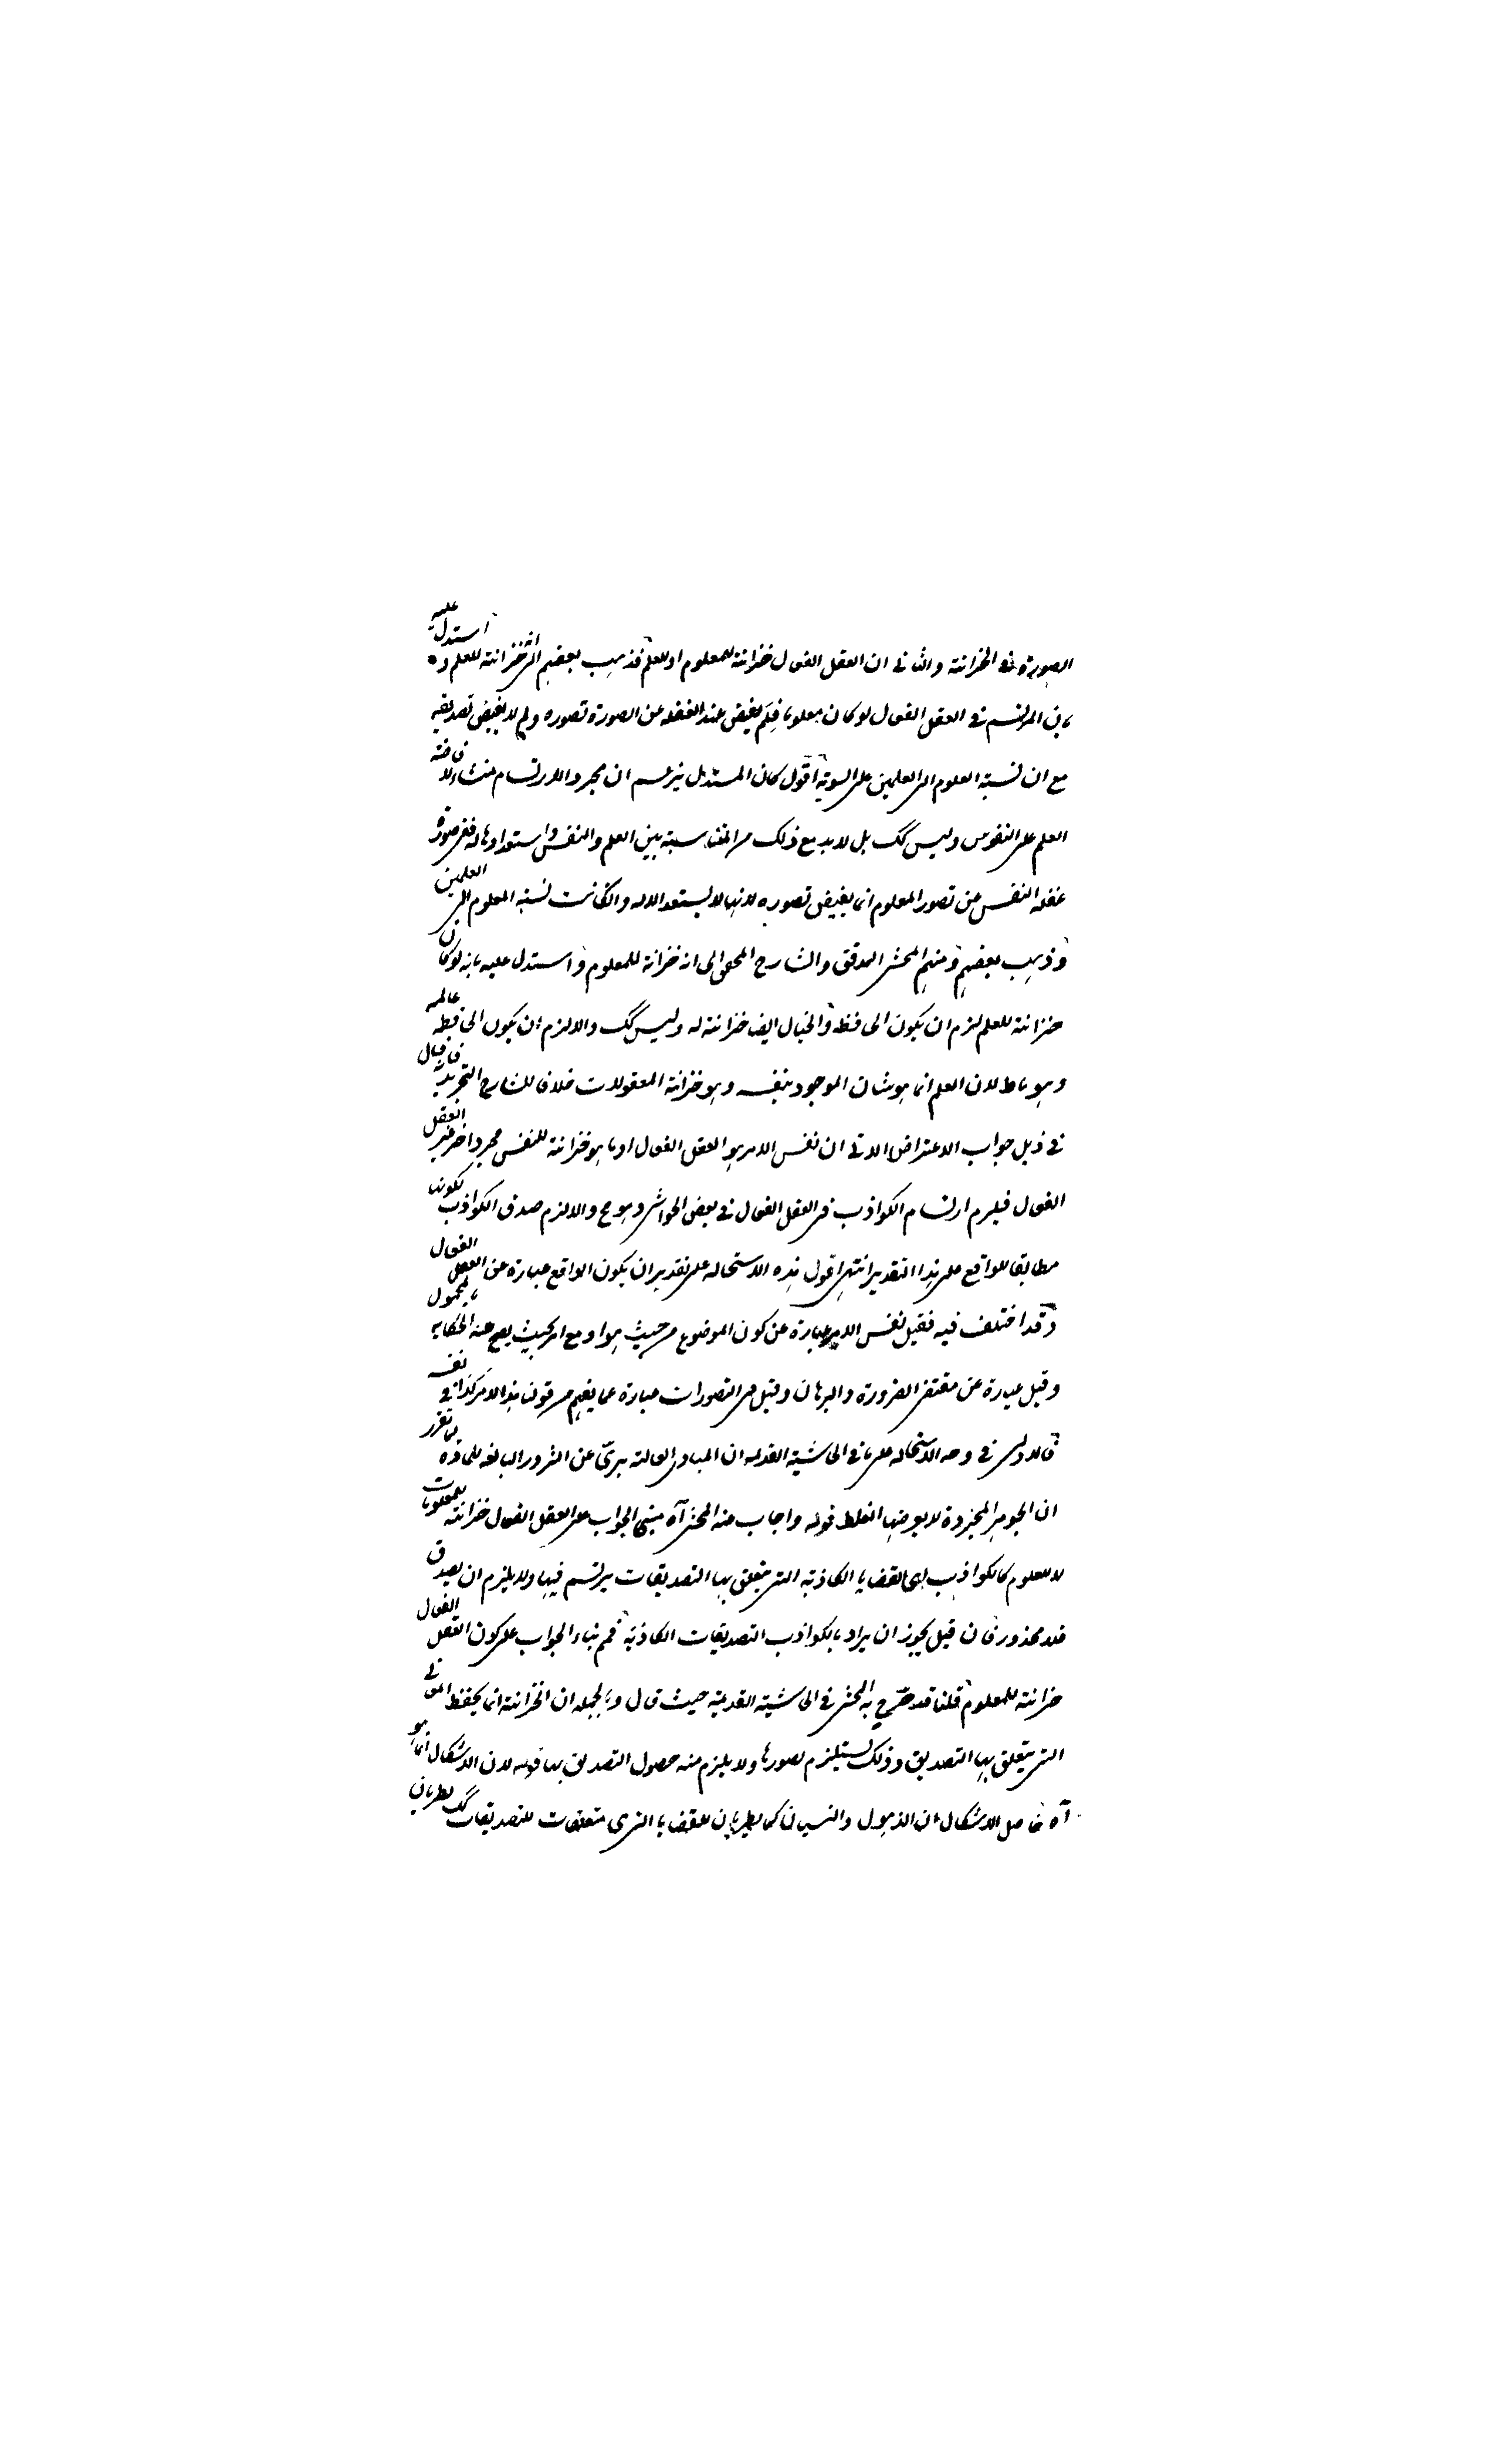 الصورة في الخزانة والثاني ان العقل الفعال خزانة للمعلوم او للعلم فذهب بعضهم الى انه خزانة للعلم و استدل عليه
بان المرتسم في العقل الفعال لو كان معلوما فلم يفيض عند الغفلة عن الصورة تصوره ولم لا يفيض تصديقه
مع ان نسبة العلوم الى العلمين على السوية اقول كان المستدل يزعم ان مجرد الارتسام منشاء لافاضة
العلم على النفوس وليس كك بل لا بد مع ذلك من المناسبة بين العلم والنفس واستعدادها له ففي صورة
غفلة النفس عن تصور المعلوم انما يفيض تصوره لانها لا يستعد الا له وان كانت نسبة المعلوم الى العلمين
وذهب بعضهم ومنهم المحشى المدقق والشارح المحقق الى انه خزانة للمعلوم واستدل عليه بانه لو كان
خزانة للعلم لزم ان يكون الحافظة والخيال ايضا خزانة له وليس كك والا لزم ان يكون الحافظة عالمة
وهو باطل لان العلم انما هو شان الموجود بنفسه وهو خزانة المعقولات خلافا للشارح التجريد فانه قال
في ذيل جواب الاعتراض الاتي ان نفس الامر هو العقل الفعال او ما هو خزانة للنفس مجردا خر غير العقل
الفعال فيلزم ارتسام الكواذب في العقل الفعال في بعض الحواشى وهو مح والا لزم صدق الكواذب لكونها
مطابقا للواقع على هذا التقدير انتهى اقول هذه الاستحالة على تقدير ان يكون الواقع عبارة عن العقل الفعال
وقد اختلف فيه فقيل نفس الامر عبارة عن كون الموضوع من حيث هو او مع امر بحيث يصح عنه الحكاية بالمحمول
وقيل عبارة عن مقتضى الضرورة والبرهان وقيل في التصورات عبارة عما يفهم من قولنا هذا الامر كذا في نفسه
فالاولى في وجه الاستحالة على ما في الحاشية القديمة ان المبادى العالية برئ عن الشرور البالغة للمادة لما تقرر
ان الجوهر المجردة لا يعرضها الغلط قوله واجاب عنه المحشى آه مبنى الجواب على العقل الفعال خزانة للمعلومات
لا للعلوم كالكواذب اى القضايا الكاذبة التى يتعلق بها التصديقات يرتسم فيها ولا يلزم ان يصدق
فلا محذور فان قيل يجوز ان يراد بالكواذب التصديقات الكاذبة فمم بناء الجواب على كون العقل الفعال
خزانة للمعلوم قلنا قد صرح به المحشى في الحاشية القديمة حيث قال وبالجملة ان الخزانة انما يحفظ المعانى
التى يتعلق بها التصديق وذلك يستلزم تصورها ولا يلزم منه حصول التصديق بها قوله لان الاشكال انما هو
آه حاصل الاشكال ان الذهول والنسيان كما يطريان للقضايا التى هى متعلقات للتصديقات كك يطريان